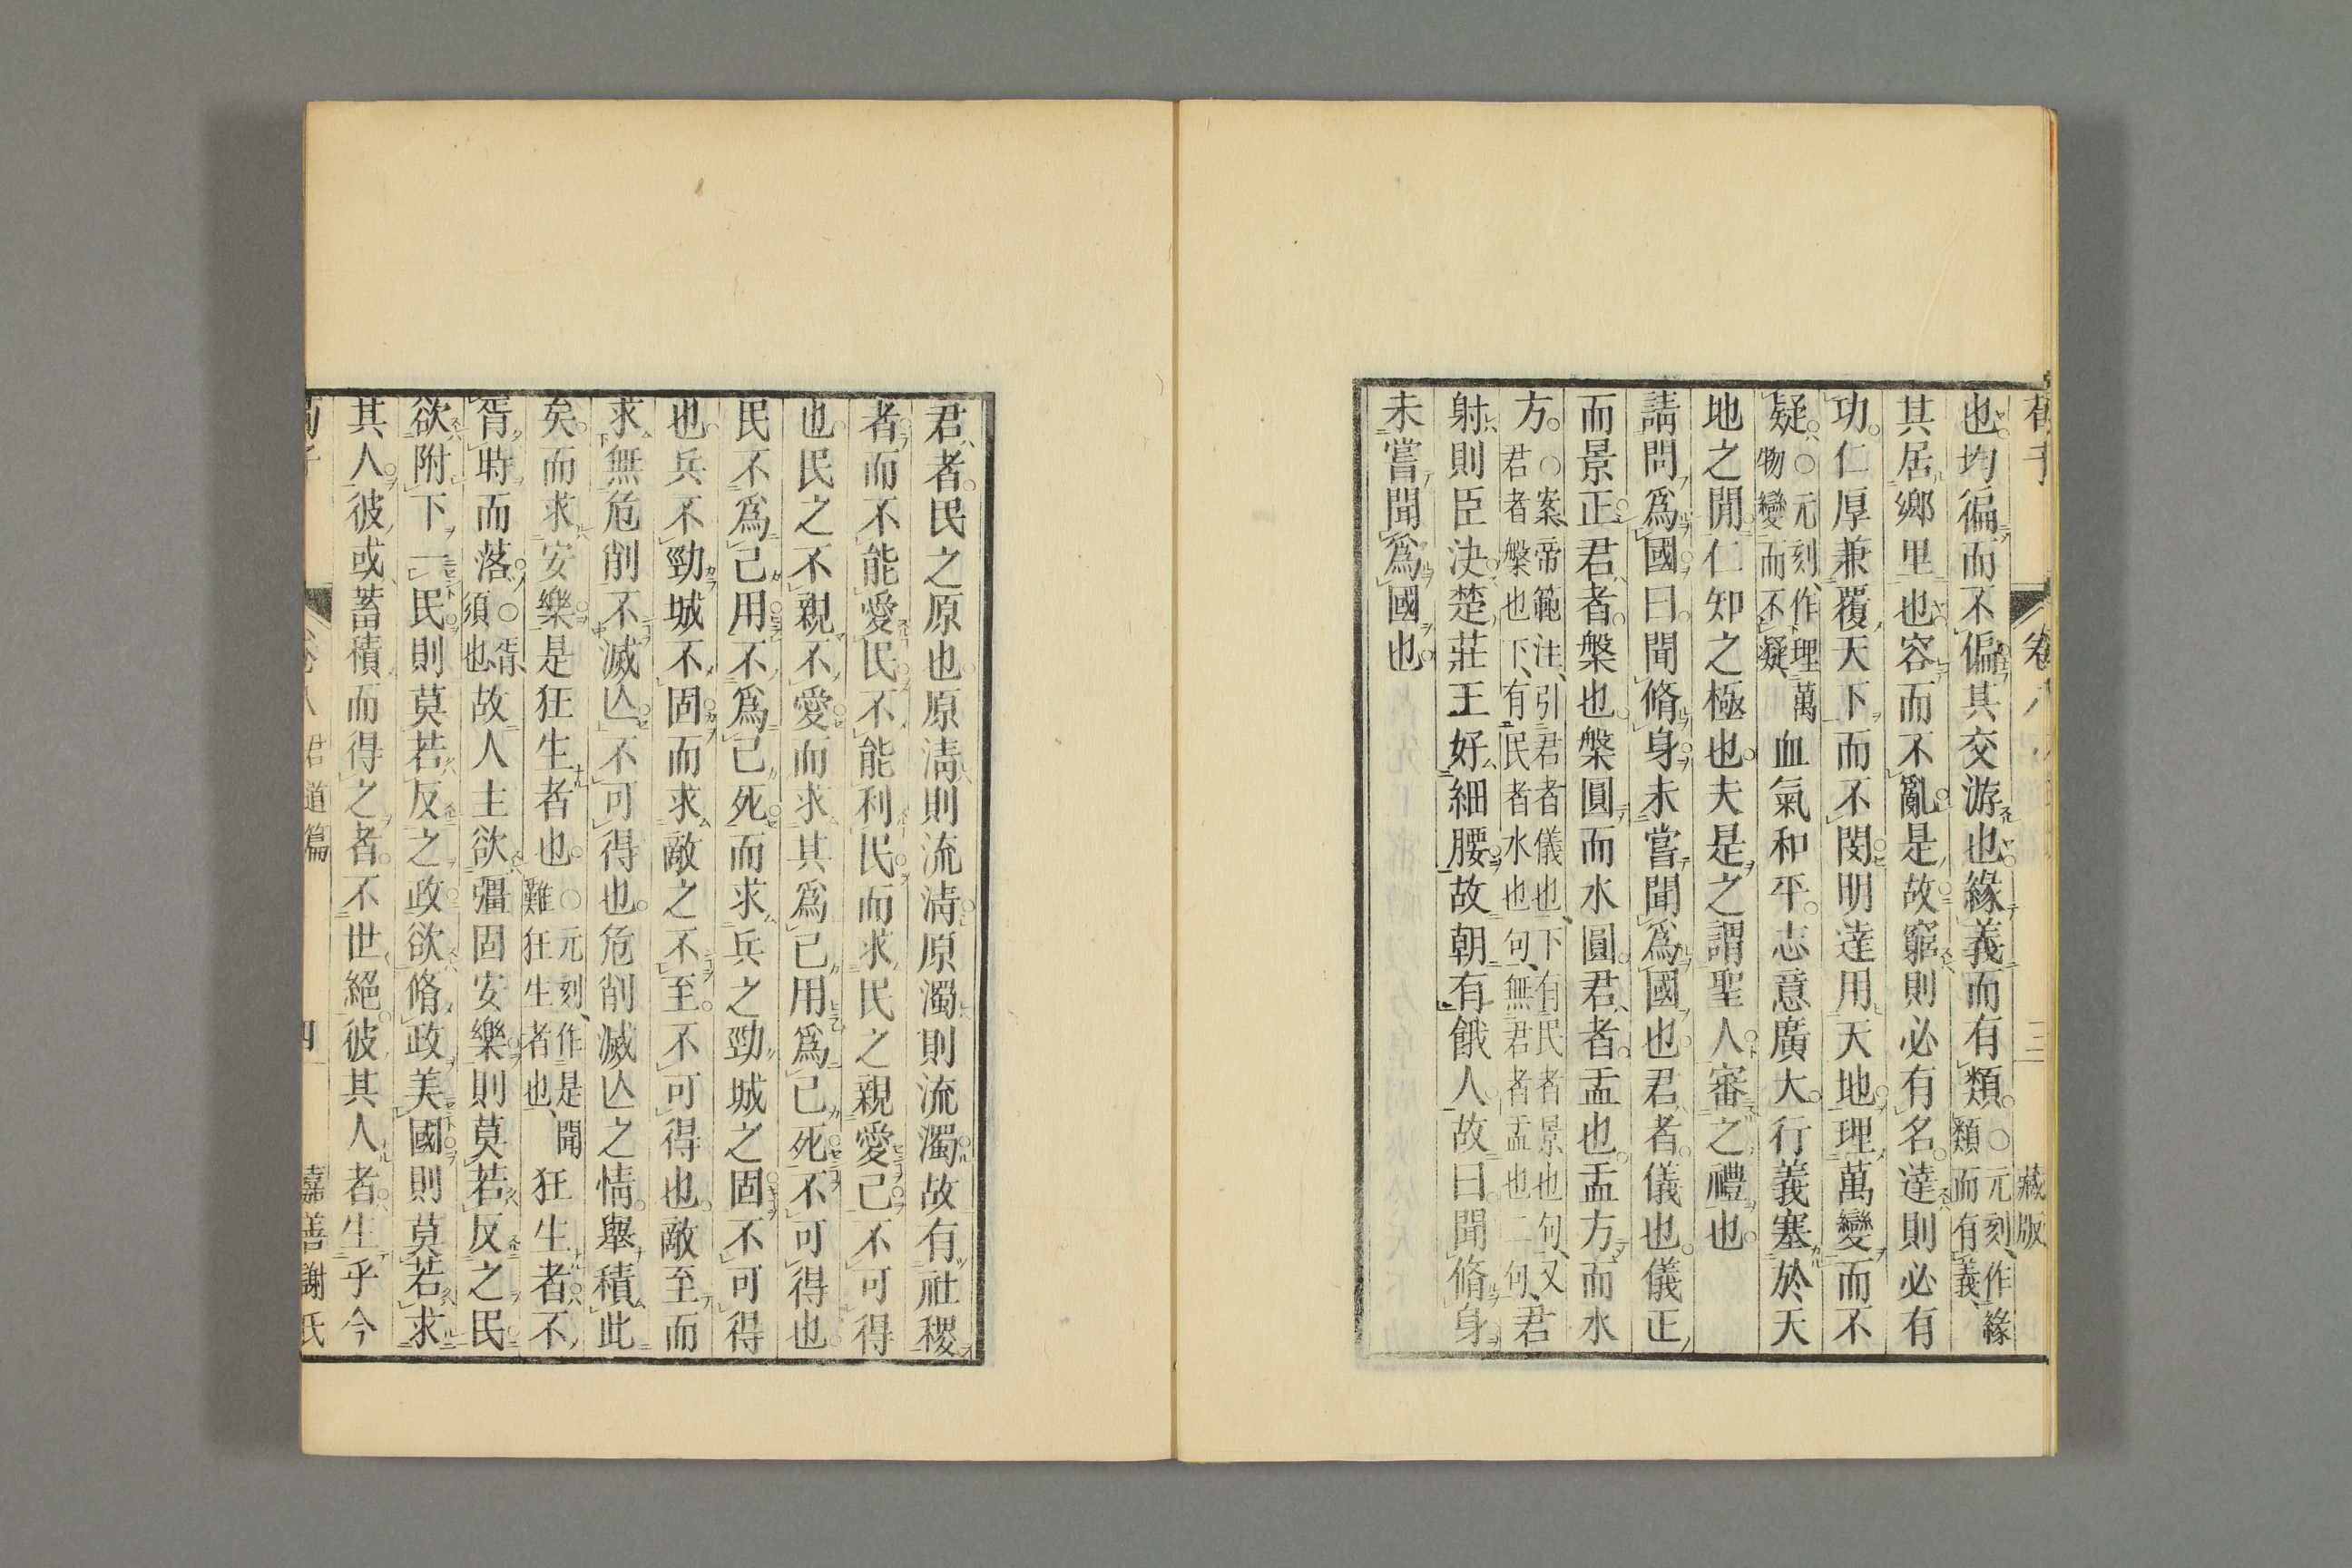 荀子 卷八 三 藏版
也均徧而不偏其交游也緣義而有類○元刻作緣類而有義
其居鄉里也容而不亂是故窮則必有名達則必有
功仁厚兼覆天下而不閔明達用天地理萬變而不
疑○元刻作理萬物變而不凝血氣和平志意廣大行義塞於天
地之閒仁知之極也夫是之謂聖人審之禮也
請問爲國曰聞脩身未嘗聞爲國也君者儀也儀正
而景正君者槃也槃圓而水圓君者盂也盂方而水
方○案帝範注引君者儀也下有民者景也句又君者槃也下有民者水也句無君者盂也二句君
射則臣決楚莊王好細腰故朝有餓人故曰聞脩身
未嘗聞爲國也
君者民之原也原淸則流淸原濁則流濁故有社稷
者而不能愛民不能利民而求民之親愛己不可得
也民之不親不愛而求其爲己用爲己死不可得也
民不爲己用不爲己死而求兵之勁城之固不可得
也兵不勁城不固而求敵之不至不可得也敵至而
求無危削不滅亾不可得也危削滅亾之情舉積此
矣而求安樂是狂生者也○元刻作是聞難狂生者也狂生者不
胥時而落○胥須也故人主欲彊固安樂則莫若反之民
欲附下一民則莫若反之政欲脩政美國則莫若求
其人彼或蓄積而得之者不世絕彼其人者生乎今
荀子 卷八 君道篇 四 嘉善謝氏